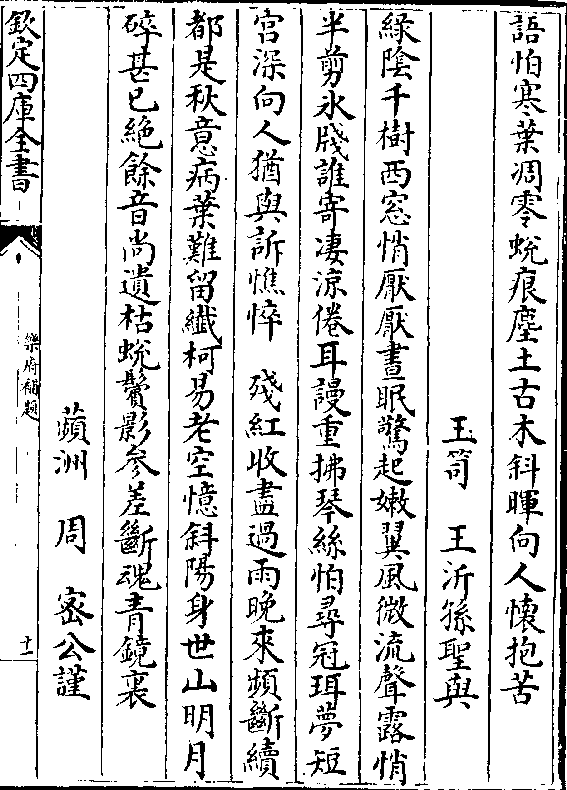 語怕寒葉凋零蛻痕塵土古木斜暉向人懷抱苦
玉笥　王沂孫聖與
緑陰千樹西窓悄厭厭晝眠驚起嫩翼風微流聲露悄
半剪氷牋誰寄凄涼倦耳謾重拂琴絲怕尋冠珥夢短
宫深向人猶與訴憔悴　殘紅收盡過雨晚來頻斷續
都是秋意病葉難留纖柯易老空憶斜陽身世山明月
碎甚已絶餘音尚遺枯蛻鬢影參差斷魂青鏡裏
蘋洲　周　密公謹
欽定四庫全書
樂府補題
十一